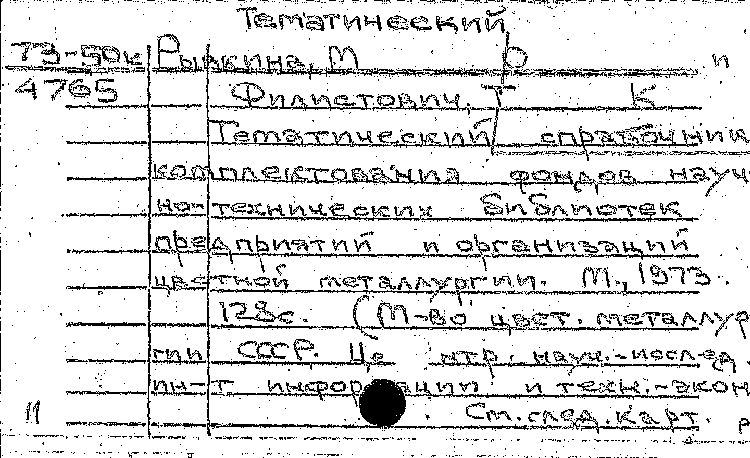 Тематический
73-50к Рывкина, М О и
4765 Филистович, Т К
Тематический справочник
комплектования фондов науч-
но-технических библиотек
предприятий и организаций
цветной металлургии. М., 1973.
128с. (М-во цвет. металлур
гии СССР. Це нтр. науч.-исслед.
ин-т информации и техн.-экон
11 См. след. карт. р